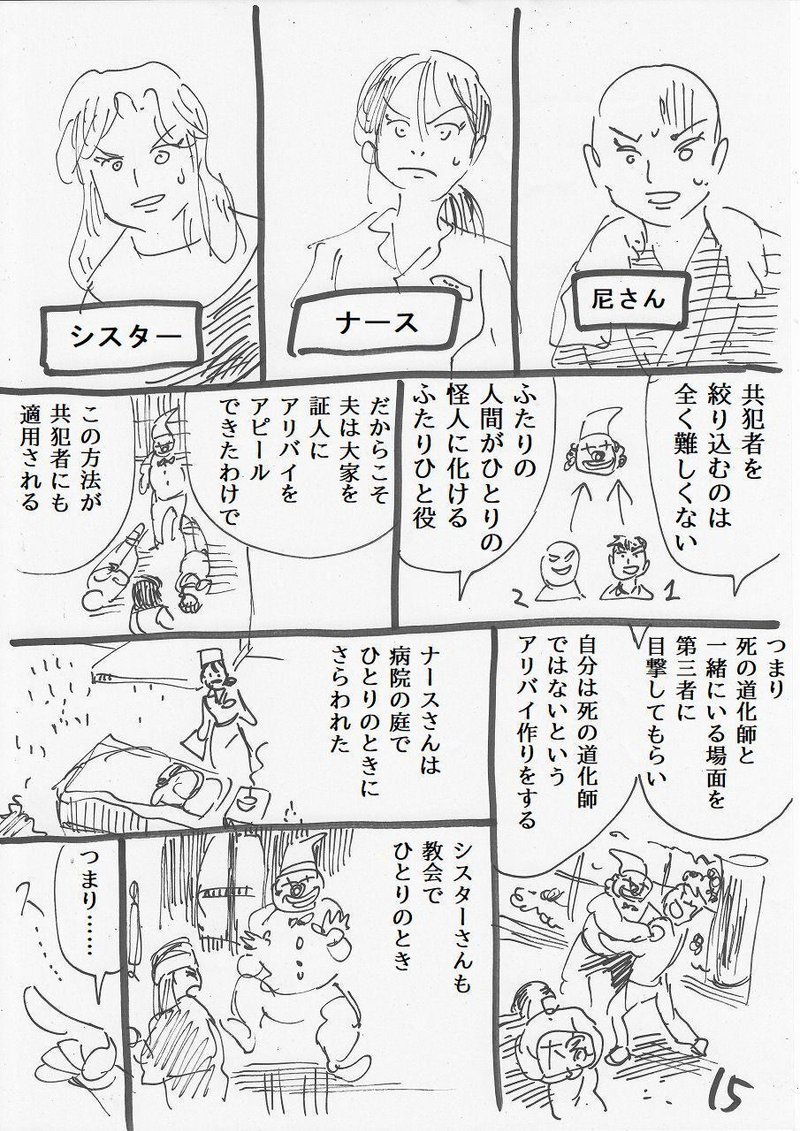 尼さん
ナース
シスター
共犯者を
絞り込むのは
全く難しくない
ふたりの
人間がひとりの
怪人に化ける
ふたりひと役
1
2
だからこそ
夫は大家を
証人に
アリバイを
アピール
できたわけで
この方法が
共犯者にも
適用される
つまり
死の道化師と
一緒にいる場面を
第三者に
目撃してもらい
自分は死の道化師
ではないという
アリバイ作りをする
大家
ナースさんは
病院の庭で
ひとりのときに
さらわれた
シスターさんも
教会で
ひとりのとき
つまり……
ス…
15